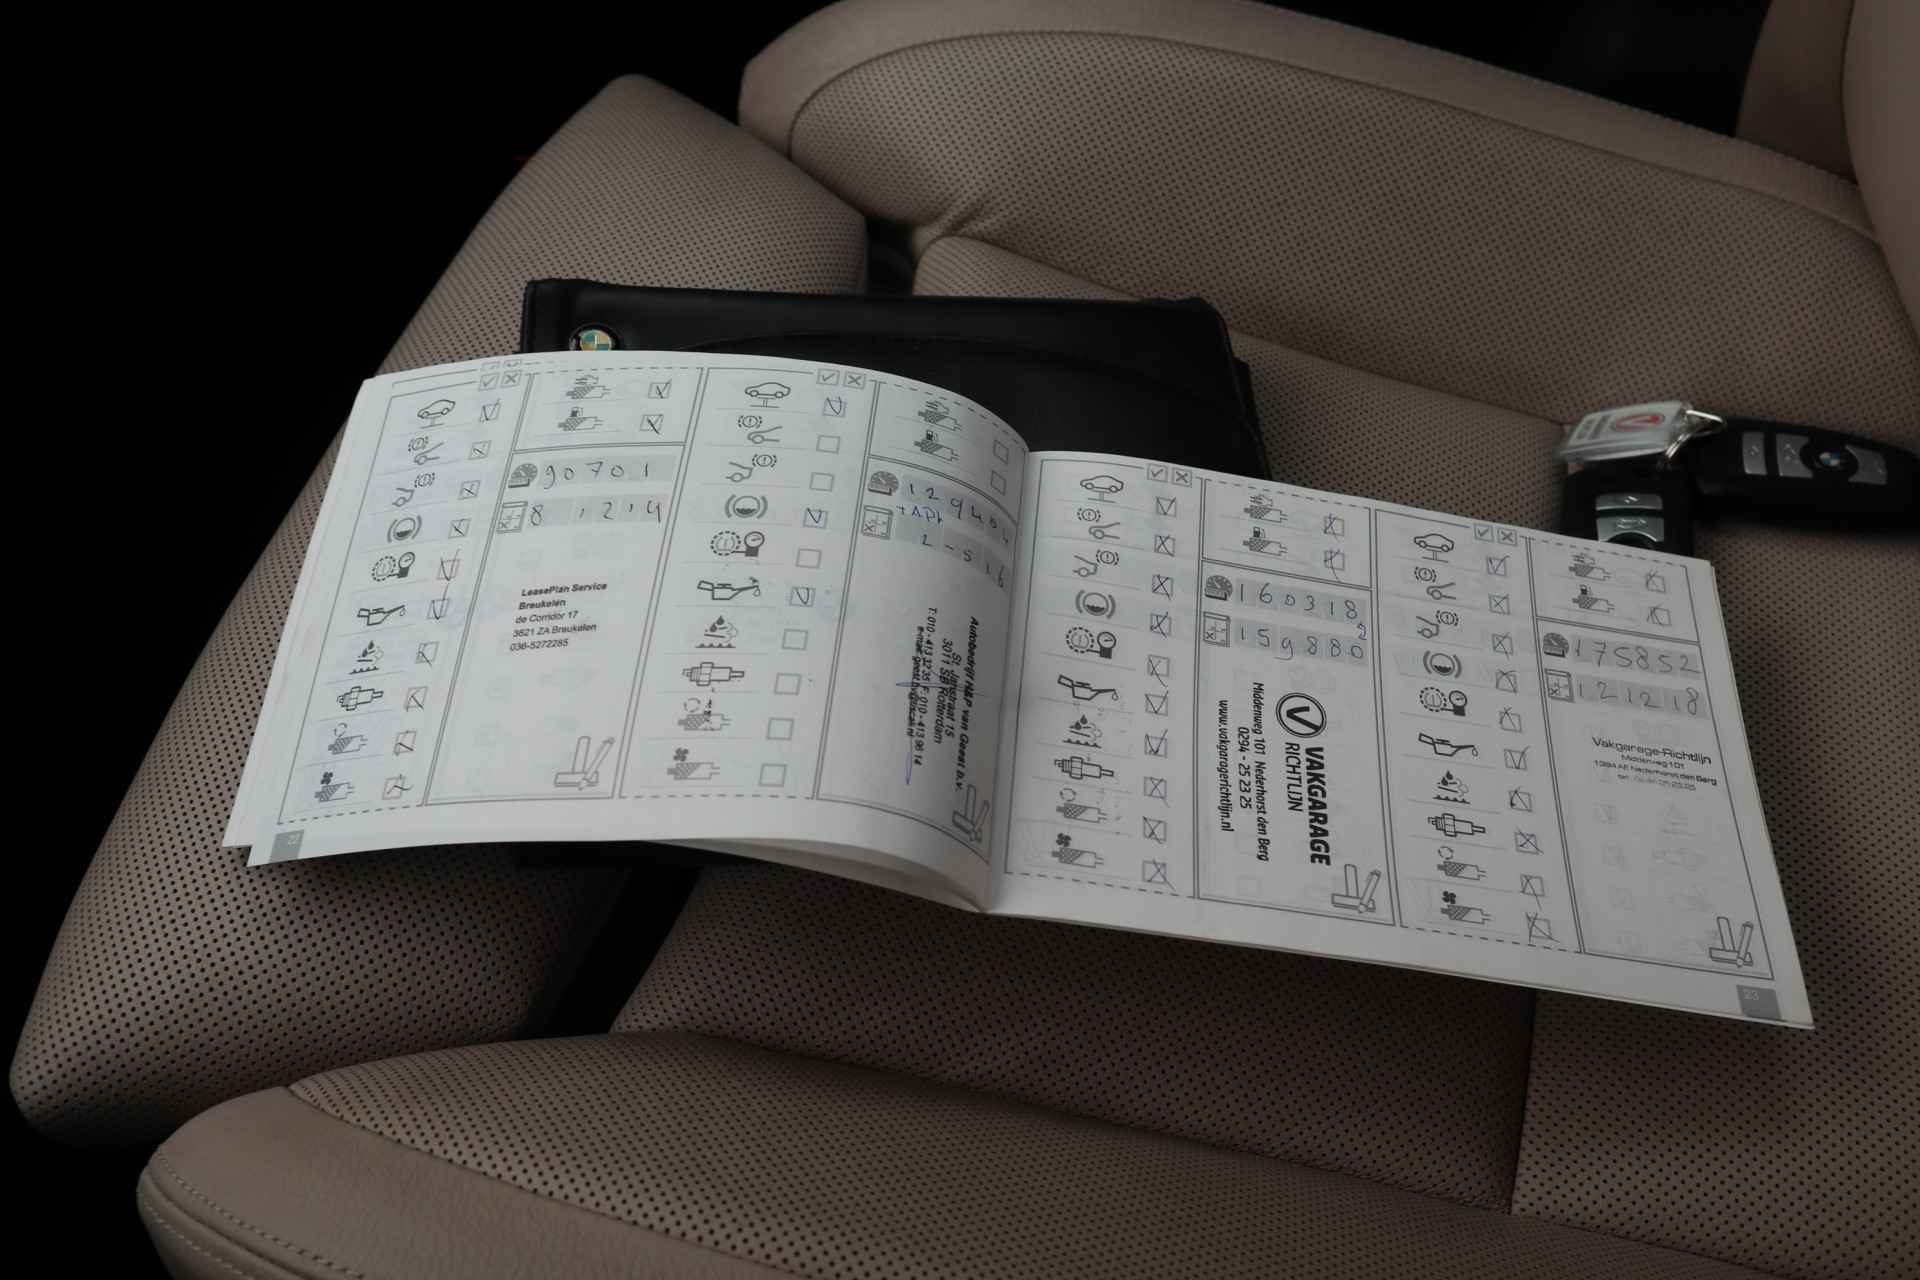 90701
8 12 14
LeasePlan Service
Breukelen
de Corridor 17
3621 ZA Breukelen
036-5272285
22
129404
+APK
2-5 16
Autobedrijf H&P van Geest b.v.
St. Janstraat 15
3011 SB Rotterdam
T. 010 - 413 12 35 F. 010 - 413 96 14
160318
159880
2
VAKGARAGE
RICHTLIJN
Middenweg 101 Nederhorst den Berg
0294 - 25 23 25
www.vakgaragerichtlijn.nl
175852
121218
Vakgarage-Richtlijn
Middenweg 101
1394 AE Nederhorst den Berg
23